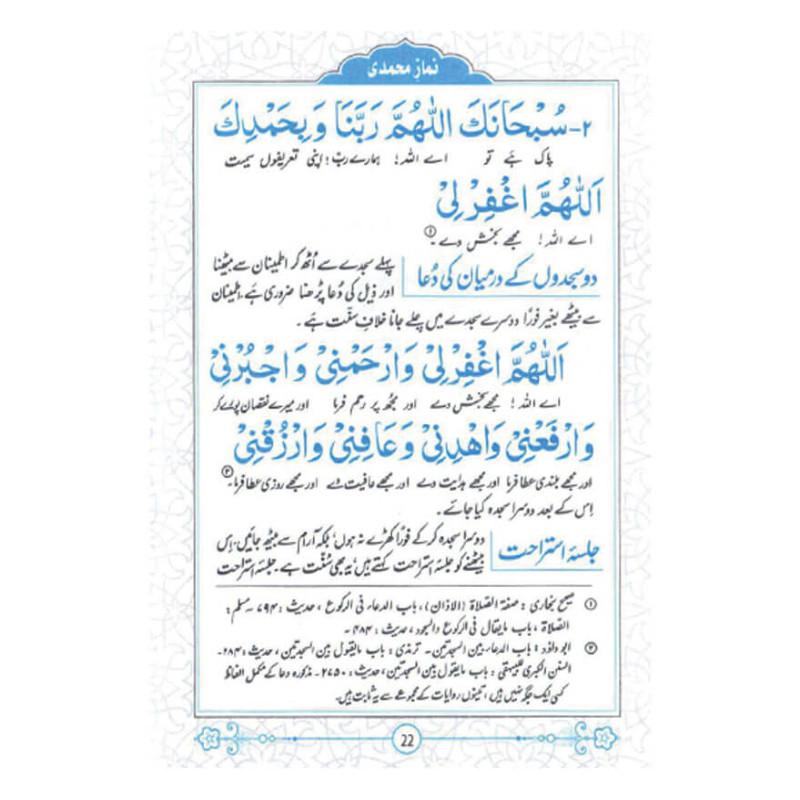 نماز محمدی
۲-سُبْحَانَكَ اللّٰهُمَّ رَبَّنَا وَبِحَمْدِكَ
پاک ہے تو اے اللہ! ہمارے رب! اپنی تعریفوں سمیت
اَللّٰهُمَّ اغْفِرْ لِیْ
اے اللہ! مجھے بخش دے۔①
دو سجدوں کے درمیان کی دُعا
پہلے سجدے سے اُٹھ کر اطمینان سے بیٹھنا
اور ذیل کی دُعا پڑھنا ضروری ہے، اطمینان
سے بیٹھے بغیر فورًا دوسرے سجدے میں چلے جانا خلافِ سنّت ہے۔
اَللّٰهُمَّ اغْفِرْلِیْ وَارْحَمْنِیْ وَاجْبُرْنِیْ
اے اللہ! مجھے بخش دے اور مجھ پر رحم فرما اور میرے نقصان پورے کر
وَارْفَعْنِیْ وَاهْدِنِیْ وَعَافِنِیْ وَارْزُقْنِیْ
اور مجھے بلندی عطا فرما اور مجھے ہدایت دے اور مجھے عافیت دے اور مجھے روزی عطا فرما۔②
اِس کے بعد دوسرا سجدہ کیا جائے۔
جلسۂ استراحت
دوسرا سجدہ کر کے فورًا کھڑے نہ ہوں، بلکہ آرام سے بیٹھ جائیں، اِس
بیٹھنے کو جلسۂ استراحت کہتے ہیں، یہ بھی سُنّت ہے۔ جلسۂ استراحت
① صحیح بخاری: صفة الصلاة (الاذان)، باب الدعاء فی الركوع، حدیث: ۷۹۴۔ مسلم:
الصلاة، باب مایقال فی الركوع والسجود، حدیث: ۴۸۴۔
② ابو داؤد: باب الدعاء بین السجدتین۔ ترمذی: باب مایقول بین السجدتین، حدیث: ۲۸۴۔
السنن الکبری للبیهقی: باب مایقول بین السجدتین، حدیث: ۲۷۵۰۔ مذکورہ دعا کے مکمل الفاظ
کسی ایک جگہ نہیں ہیں، تینوں روایات کے مجموعے سے یہ ثابت ہیں۔
22